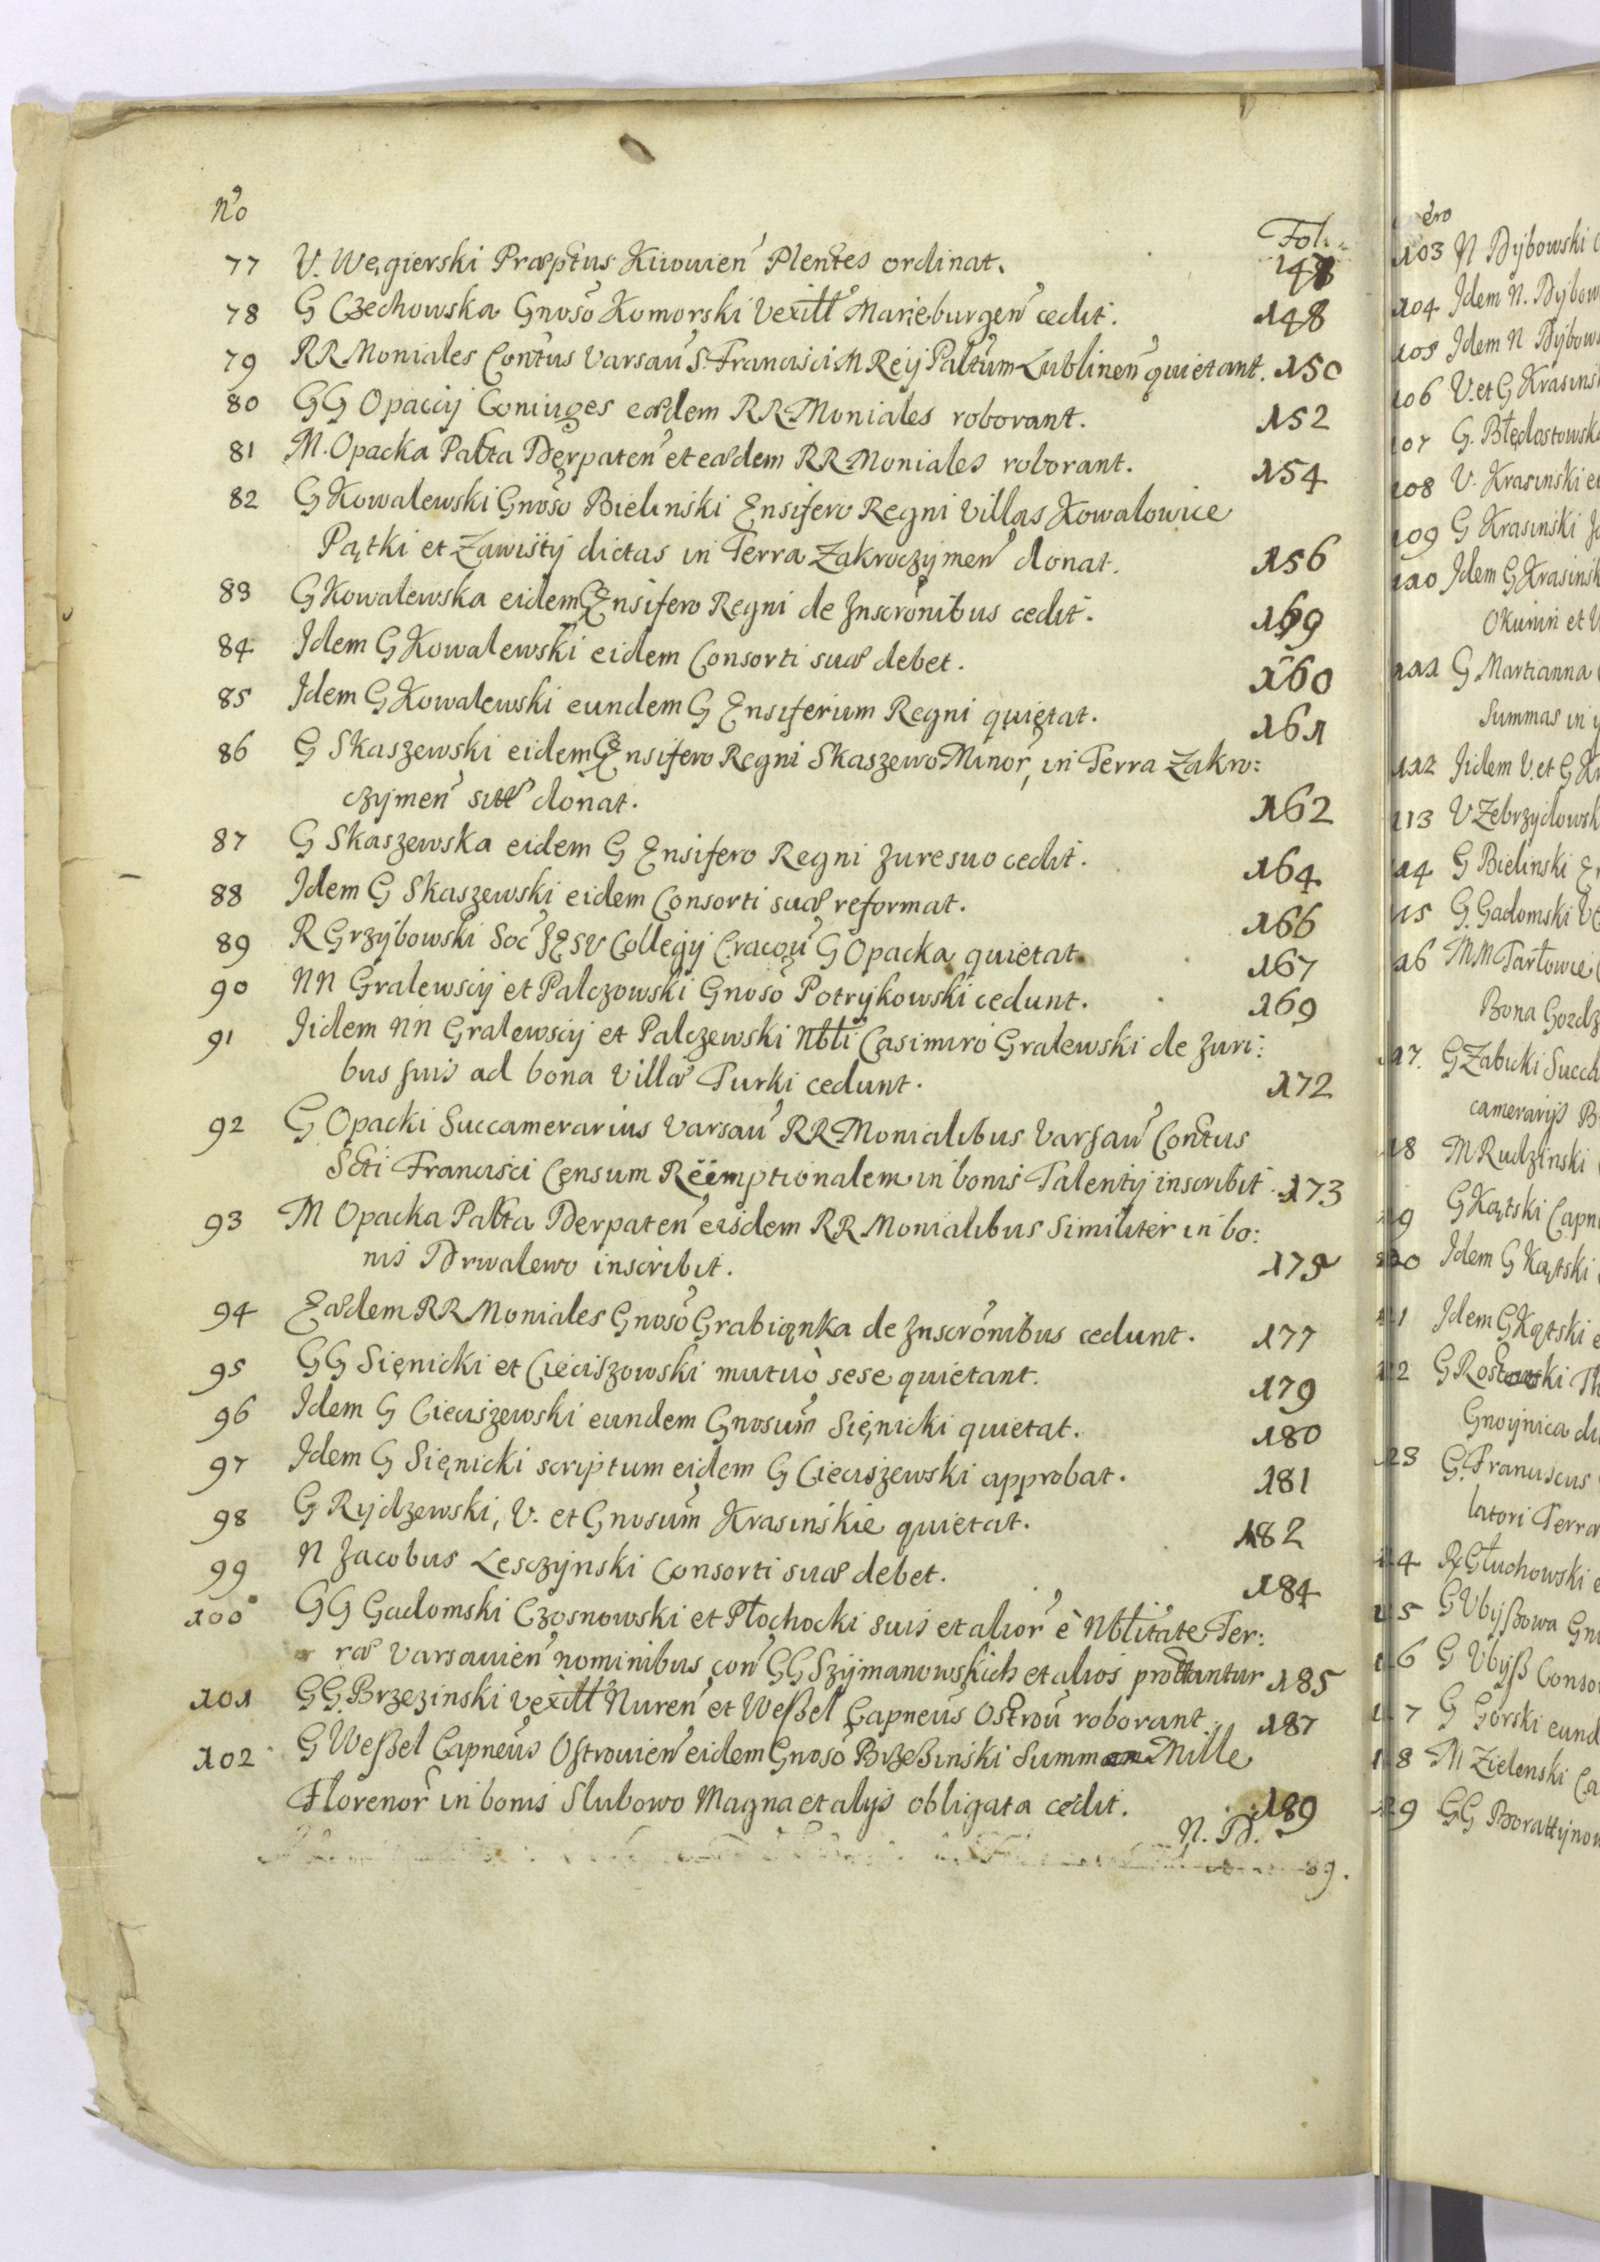 No
Fol.
77 V. Węgierski Præptus Kiiowien Plentes ordinat. 147
78 G Czechowska Gnoso Komorski Vexill Marieburgen cedit. 148
79 RR Moniales Contus Varsau S. Francisci M Reij Paltum Lublinen quietant. 150
80 GG Opaccij Coniuges eædem RR Moniales roborant. 152
81 M. Opacka Palta Derpaten et eædem RR Moniales roborant. 154
82 G Kowalewski Gnoso Bielinski Ensifero Regni Villas Kowalowice
Pątki et Zawisty dictas in Terra Zakroczymen donat. 156
83 G Kowalewska eidem G Ensifero Regni de Inscronibus cedit. 159
84 Idem G Kowalewski eidem Consorti suæ debet. 160
85 Idem G Kowalewski eundem G Ensiferum Regni quietat. 161
86 G Skaszewski eidem G Ensifero Regni Skaszewo Minor, in Terra Zakro:
czymen sitt donat. 162
87 G Skaszewska eidem G Ensifero Regni Jure suo cedit. 164
88 Idem G Skaszewski eidem Consorti suæ reformat. 166
89 R Grzybowski Soc JESV Collegij Cracou G Opacka quietat. 167
90 NN Gralewscij et Palczowski Gnoso Potrykowski cedunt. 169
91 Iidem NN Gralewscij et Palczewski Nbli Casimiro Gralewski de Juri:
bus suis ad bona Villæ Turki cedunt. 172
92 G Opacki Succamerarius Varsau RR Monialibus Varsau Contus
Scti Francisci Censum Reemptionalem in bonis Talenty inscribit. 173
93 M Opacka Palta Derpaten eisdem RR Monialibus Similiter in bo:
nis Drwalewo inscribit. 175
94 Eædem RR Moniales Gnoso Grabianka de Inscronibus cedunt. 177
95 GG Sienicki et Cieciszowski mutuo sese quietant. 179
96 Idem G Cieciszewski eundem Gnosum Sienicki quietat. 180
97 Idem G Sienicki scriptum eidem G Cieciszewski approbat. 181
98 G Rydzewski, V. et Gnosum Krasinskie quietat. 182
99 N Jacobus Lesczynski Consorti suæ debet. 184
100 GG Gadomski Czosnowski et Płochocki suis et alior è Nblitate Ter:
ræ Varsauien nominibus con GG Szymanowskich et alios prottantur 185
101 GG. Brzezinski vexill Nuren et Weßel Capneus Ostrou roborant. 187
102 G Weßel Capneus Ostrouien eidem Gnoso Brzeßinski Summ Mille
Florenor in bonis Slubowo Magna et alijs obligata cedit. 189
N. B.
89.
ero
103 N Dybowski
104 Idem N. Dybow
105 Idem N Dybow
106 V. et G Krasins
107 G. Błędostowsk
108 V. Krasinski
109 G Krasinski
110 Idem G Krasinsk
Okunin et
111 G Martianna
Summas in
112 Iidem V. et G Kr
113 V Zebrzydowsk
14 G Bielinski
15 G. Gadomski
16 MM Tarłowie
Bona Gozdz
17. G Zabicki Succ
camerarijs
18 M Rudzinski
19 G Kątski Capn
120 Idem G Kątski
21 Idem G Kątski
12 G Rostowski
Gnoynica
23 G. Franciscus
latori Terra
14 R Głuchowski
15 G Vbyßowa
16 G Vbyß Conso
17 G Gorski eund
18 M Zielenski
19 GG Borattyno